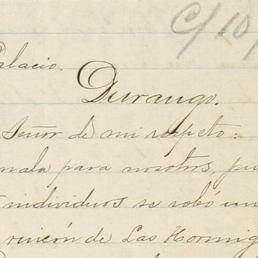 C/10
Palacio.
Durango.
Señor de mi respeto:
mala para nosotros, pu
individuos se robó un
rincón de Las Hormig